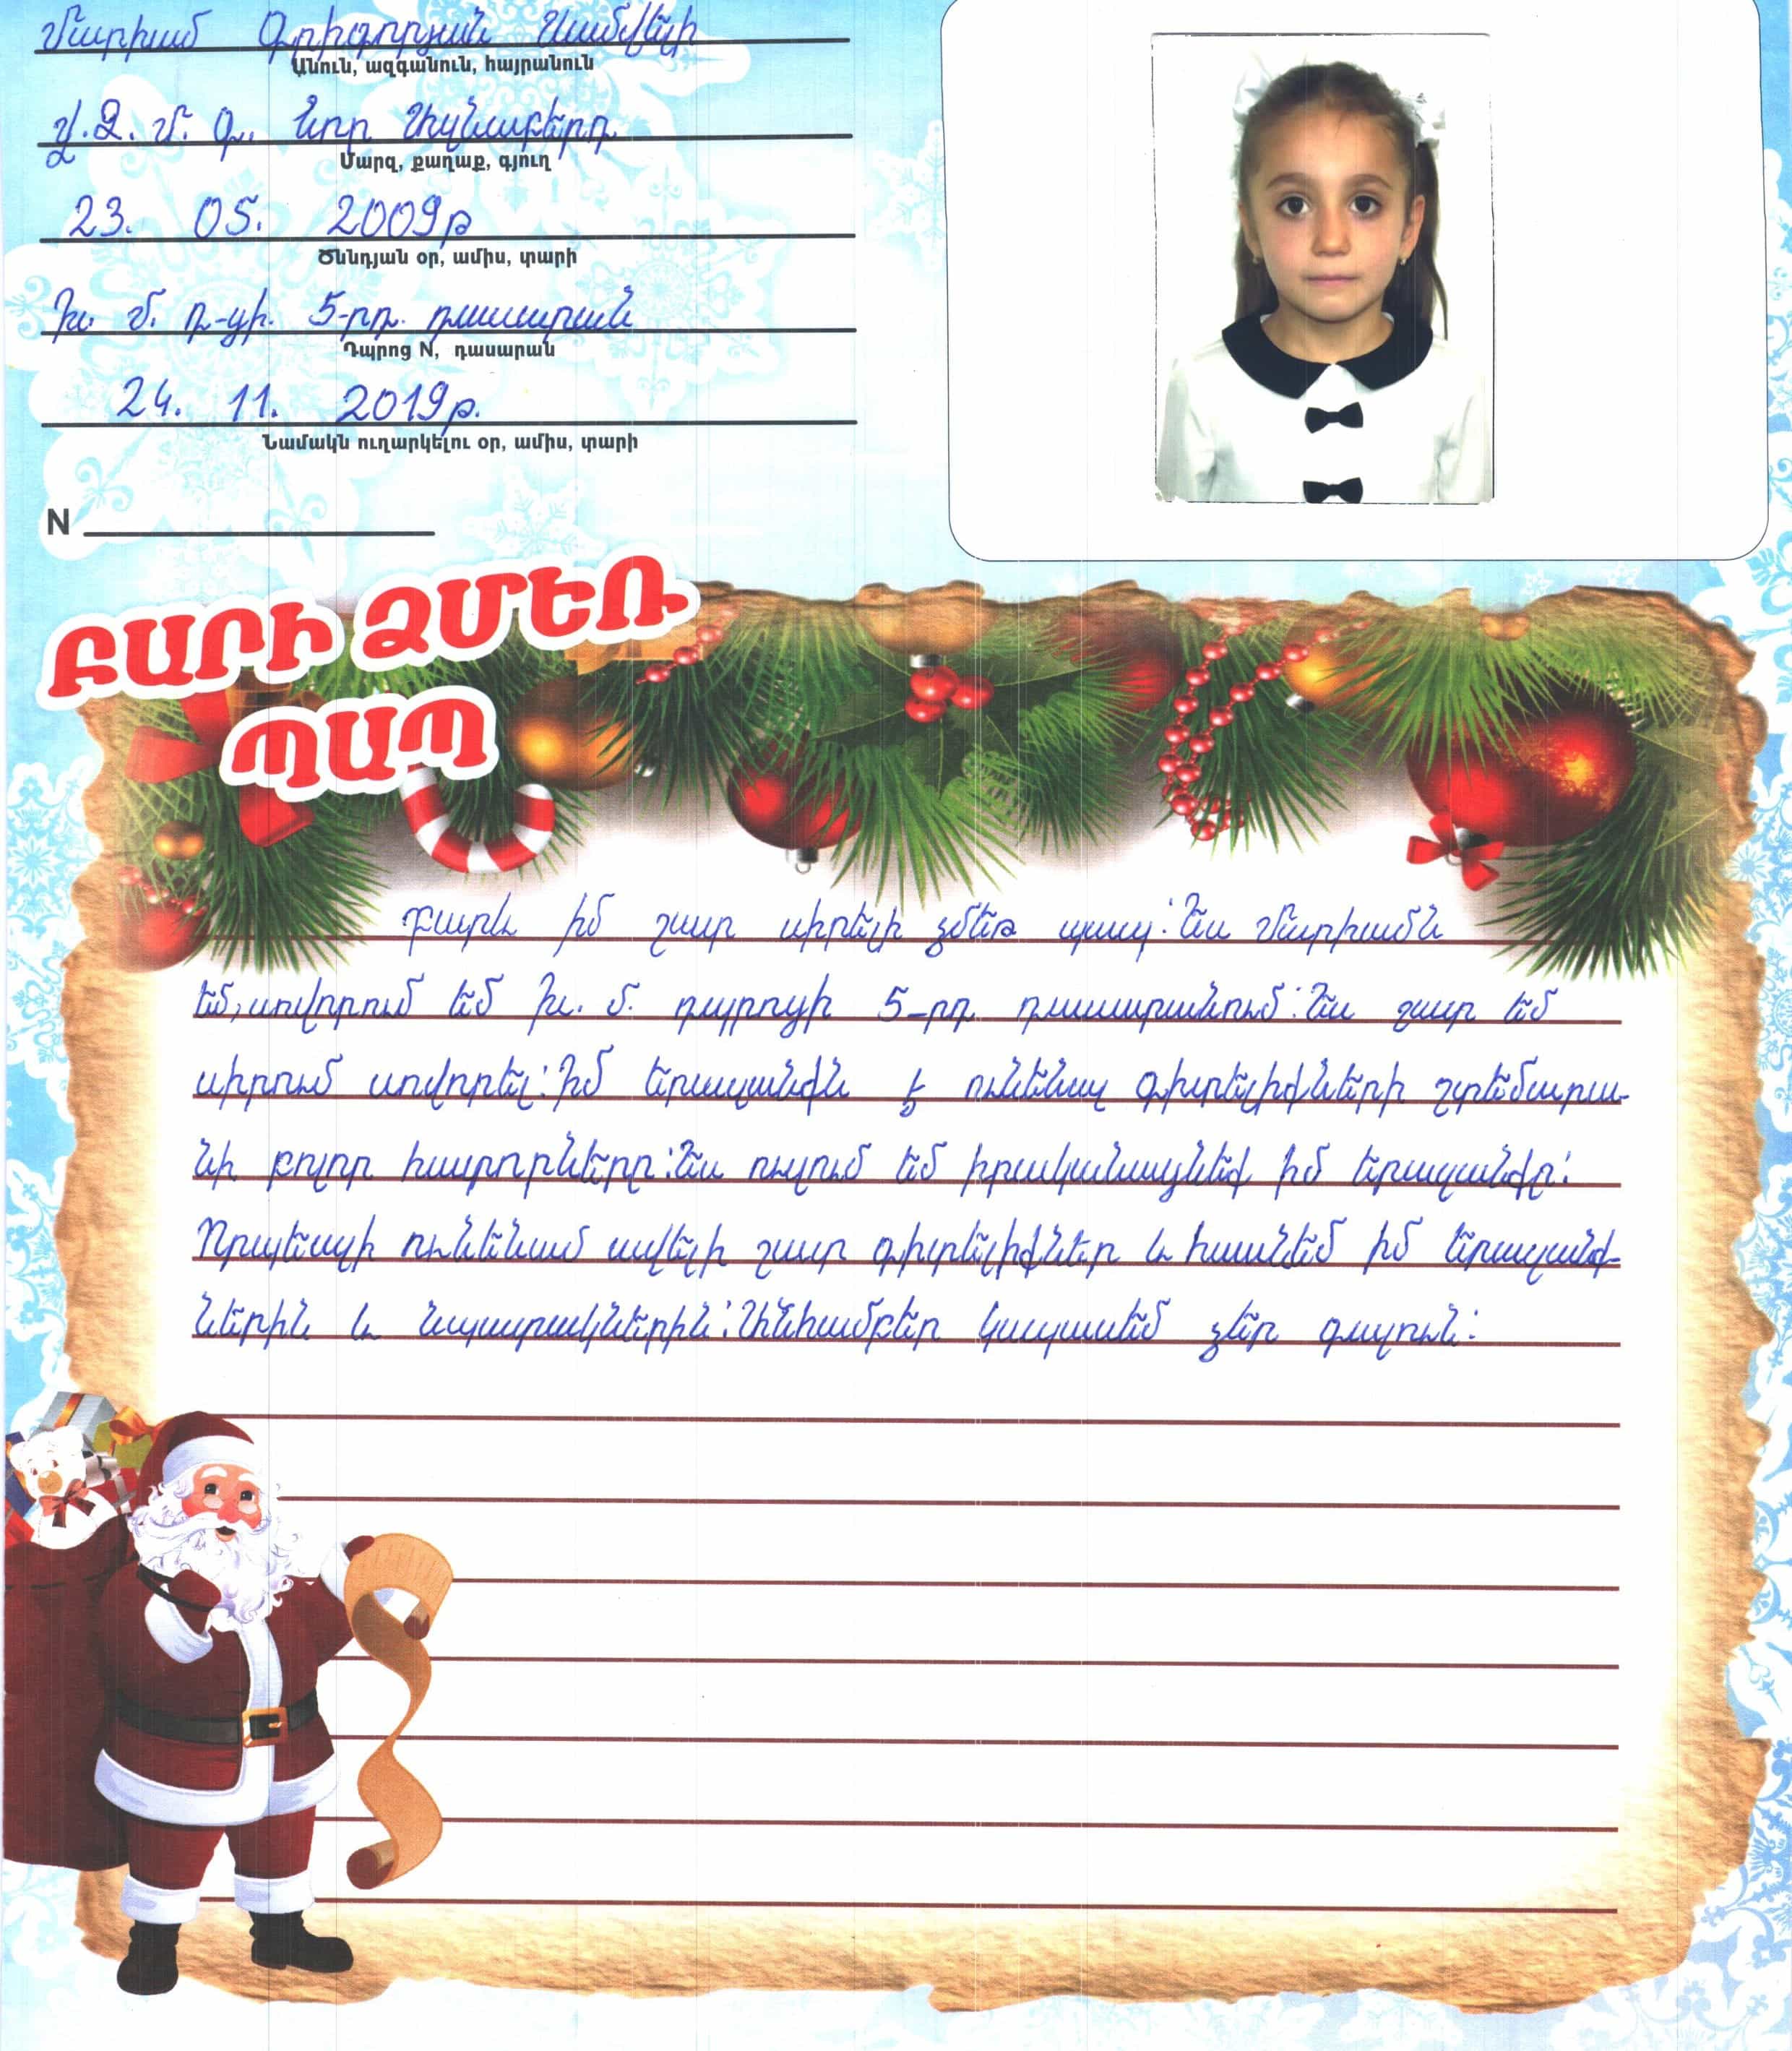 Մարիամ Գրիգորյան Սամվելի
Անուն, ազգանուն, հայրանուն
Վ.Ձ. մ. գ. Նոր Ազնաբերդ
Մարզ, քաղաք, գյուղ
23. 05. 2009թ
Ծննդյան օր, ամիս, տարի
Խ. մ. դ-ցի. 5-րդ. դասարան
Դպրոց N, դասարան
24. 11. 2019թ.
Նամակն ուղարկելու օր, ամիս, տարի
N
ԲԱՐԻ ՁՄԵՌ
ՊԱՊ
Բարև իմ շատ սիրելի ձմեռ պապ: Ես Մարիամն
եմ, սովորում եմ Խ. մ. դպրոցի 5-րդ դասարանում: Ես շատ եմ
սիրում սովորել: Իմ երազանքն է ունենալ գիտելիքների շտեմարա-
նի բոլոր հատորները: Ես ուզում եմ իրականացնեք իմ երազանքը:
Որպեսզի ունենամ ավելի շատ գիտելիքներ և հասնեմ իմ երազանք-
ներին և նպատակներին: Անհամբեր կսպասեմ ձեր գալուն: